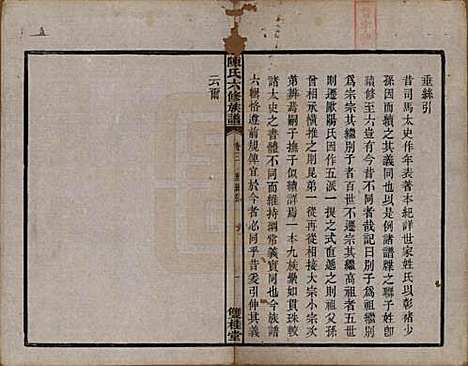 垂絲引
昔司馬太史作年表著本紀詳世家姓氏以彰褚少
孫因而續之其義同也以是例諸譜牒之聯子姓卽
續修至六豈有今昔不殊者哉記曰別子爲祖繼別
爲宗宗其繼別子者百世不遷宗其繼高祖者五世
則遷歐陽氏因作五派一提之式直遞之則自高祖
曾相承橫推之則兄弟一從再從相接大宗小宗次
第葬嗣子撫子似續詳焉一本九族纍如貫珠較
諸太史之書體不同而維持綱常義實同也今族譜
六輯恪遵前規俾宜於今者必同乎昔爰引伸其義
云爾
陳氏六修族譜
卷三
垂絲引
一
雙桂堂